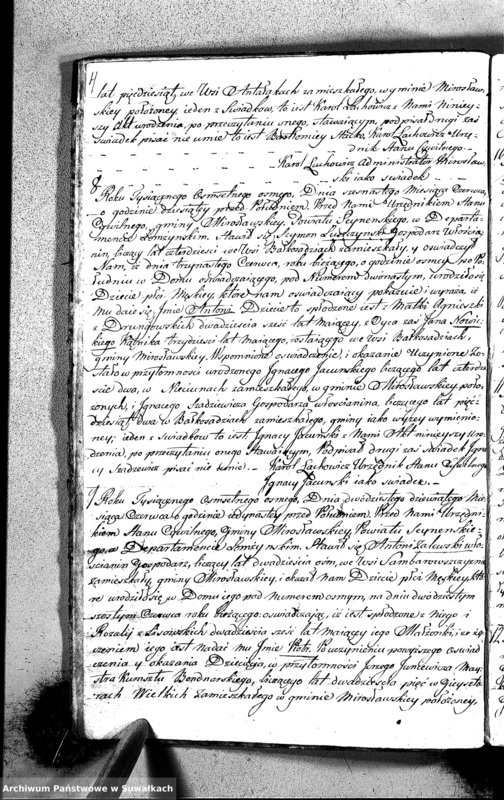 4
lat pięcdziesiąt, we Wsi Antaszkach zamieszkałego, wyminie Mirosław-
skiey położoney ieden z Swiadkow, to iest Karol Lachowicz z Nami Niniey-
szy Akt urodzenia, po przeczytaniu onego, stawaiącym, podpisał drugi zaś
Swiadek pisać nie umie to iest Bartłomiey Karol Lachowicz Urzę-
dnik Stanu Cywilnego.
Karol Lachowicz Administrator Mirosław-
ski iako swiadek
8 Roku Tysiącznego Osmsetnego osmego, Dnia Miesiąca Czerwca,
o godzinie dziesiąty przed Południem. Przed Nami Urzędnikiem Stanu
Cywilnego, gminy Mirosławskiey, Powiatu Seynenskiego, w Departa-
mencie Łomzynskim. Stawił się Szymon Gospodarz Włościa-
nin, liczący lat czterdziesci we Wsi Bałkosadziach zamieszkały, y oswiadczył
Nam, iż dnia trzynastego Czerwca, roku bieżącego, o godzinie osmey po Po-
łudniu w Domu oswiadczaiącego, pod Numerem dwonastym, urodziło się
Dziecie płci Męskiey które nam oswiadczaiący pokazuie i wyraża, iż
mu daie się Imie Antoni. Dziecie to spłodzone iest z Matki Agnieszki
z Drungowskich dwadziescia sześć lat maiącey, z Oyca zaś Jana Nowic-
kiego Kątnika trzydziesci lat maiącego, zostaiącego we Wsi Bałkosadziach,
gminy Mirosławskiey. Wspomnione oswiadczenie, i okazanie Uczynione Zo-
stało w przytomności urodzonego Ignacego Jacunskiego liczącego lat czterdzie-
ście dwa, w Nieciunach zamieszkałego, w gminie Mirosławskiey poło-
żonych, i Ignacego Szadziewicza Gospodarza włoscianina, liczącego lat pięć-
dziesiąt dwa w Bałkosadziach zamieszkałego, gminy iako wyżey wymienio-
ney; ieden z Swiadkow to iest Ignacy Jacunski z Nami Akt ninieyszy Uro-
dzenia, po przeczytaniu onego Stawaiącym, Podpisał drugi zas Swiadek Igna-
cy Szadziewicz pisać nie umie. Karol Lachowicz Urzędnik Stanu Cywilnego
Ignacy Jacunski iako swiadek
9 Roku Tysiącznego Osmsetnego osmego, Dnia dwódziestego dziewiątego Mie-
siąca Czerwca o godzinie iedynastey przed Południem. Przed Nami Urzędni-
kiem Stanu Cywilnego, Gminy Mirosławskiey, Powiatu Seynenskie-
go, w Departamencie Łomzynskim. Stawił się Antoni Zalewski wło-
ścianin Gospodarz, liczący lat dwadziescia osm, we Wsi Sambarowszczyznie
zamieszkały, gminy Mirosławskiey; i okazał nam Dziecie płci Męskiey, któ-
re urodziło się w Domu iego pod numerem osmym, na dniu dwódziestym
szostym Czerwca roku bieżącego: oswiadczaiąc, iż iest spłodzone z niego i
Rozalij z Lisowskich dwadziescia sześć lat maiącey iego Małżonki; i że ży-
czeniem iego iest nadać mu Imie Piotr. Po uczynieniu powyższego oswiad-
czenia y okazania Dziecięcia, w przytomności Jerzego Junkiewicza May-
stra kunsztu Bendnorskiego, liczącego lat dwadziescia pięć w Giezysto-
rach Wielkich zamieszkałego w gminie Mirosławskiey położoney,
Archiwum Państwowe w Suwałkach